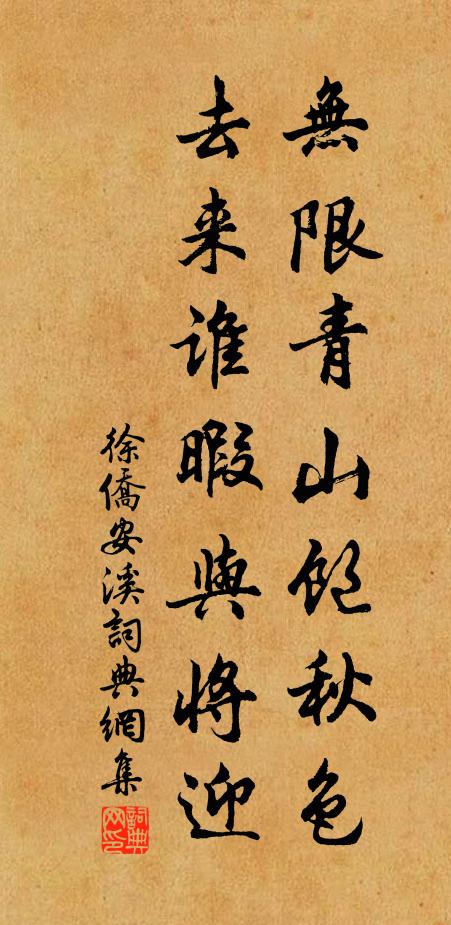 無限青山飽秋色
去来谁暇與將迎
徐僑安溪詞典網集
詞典网印